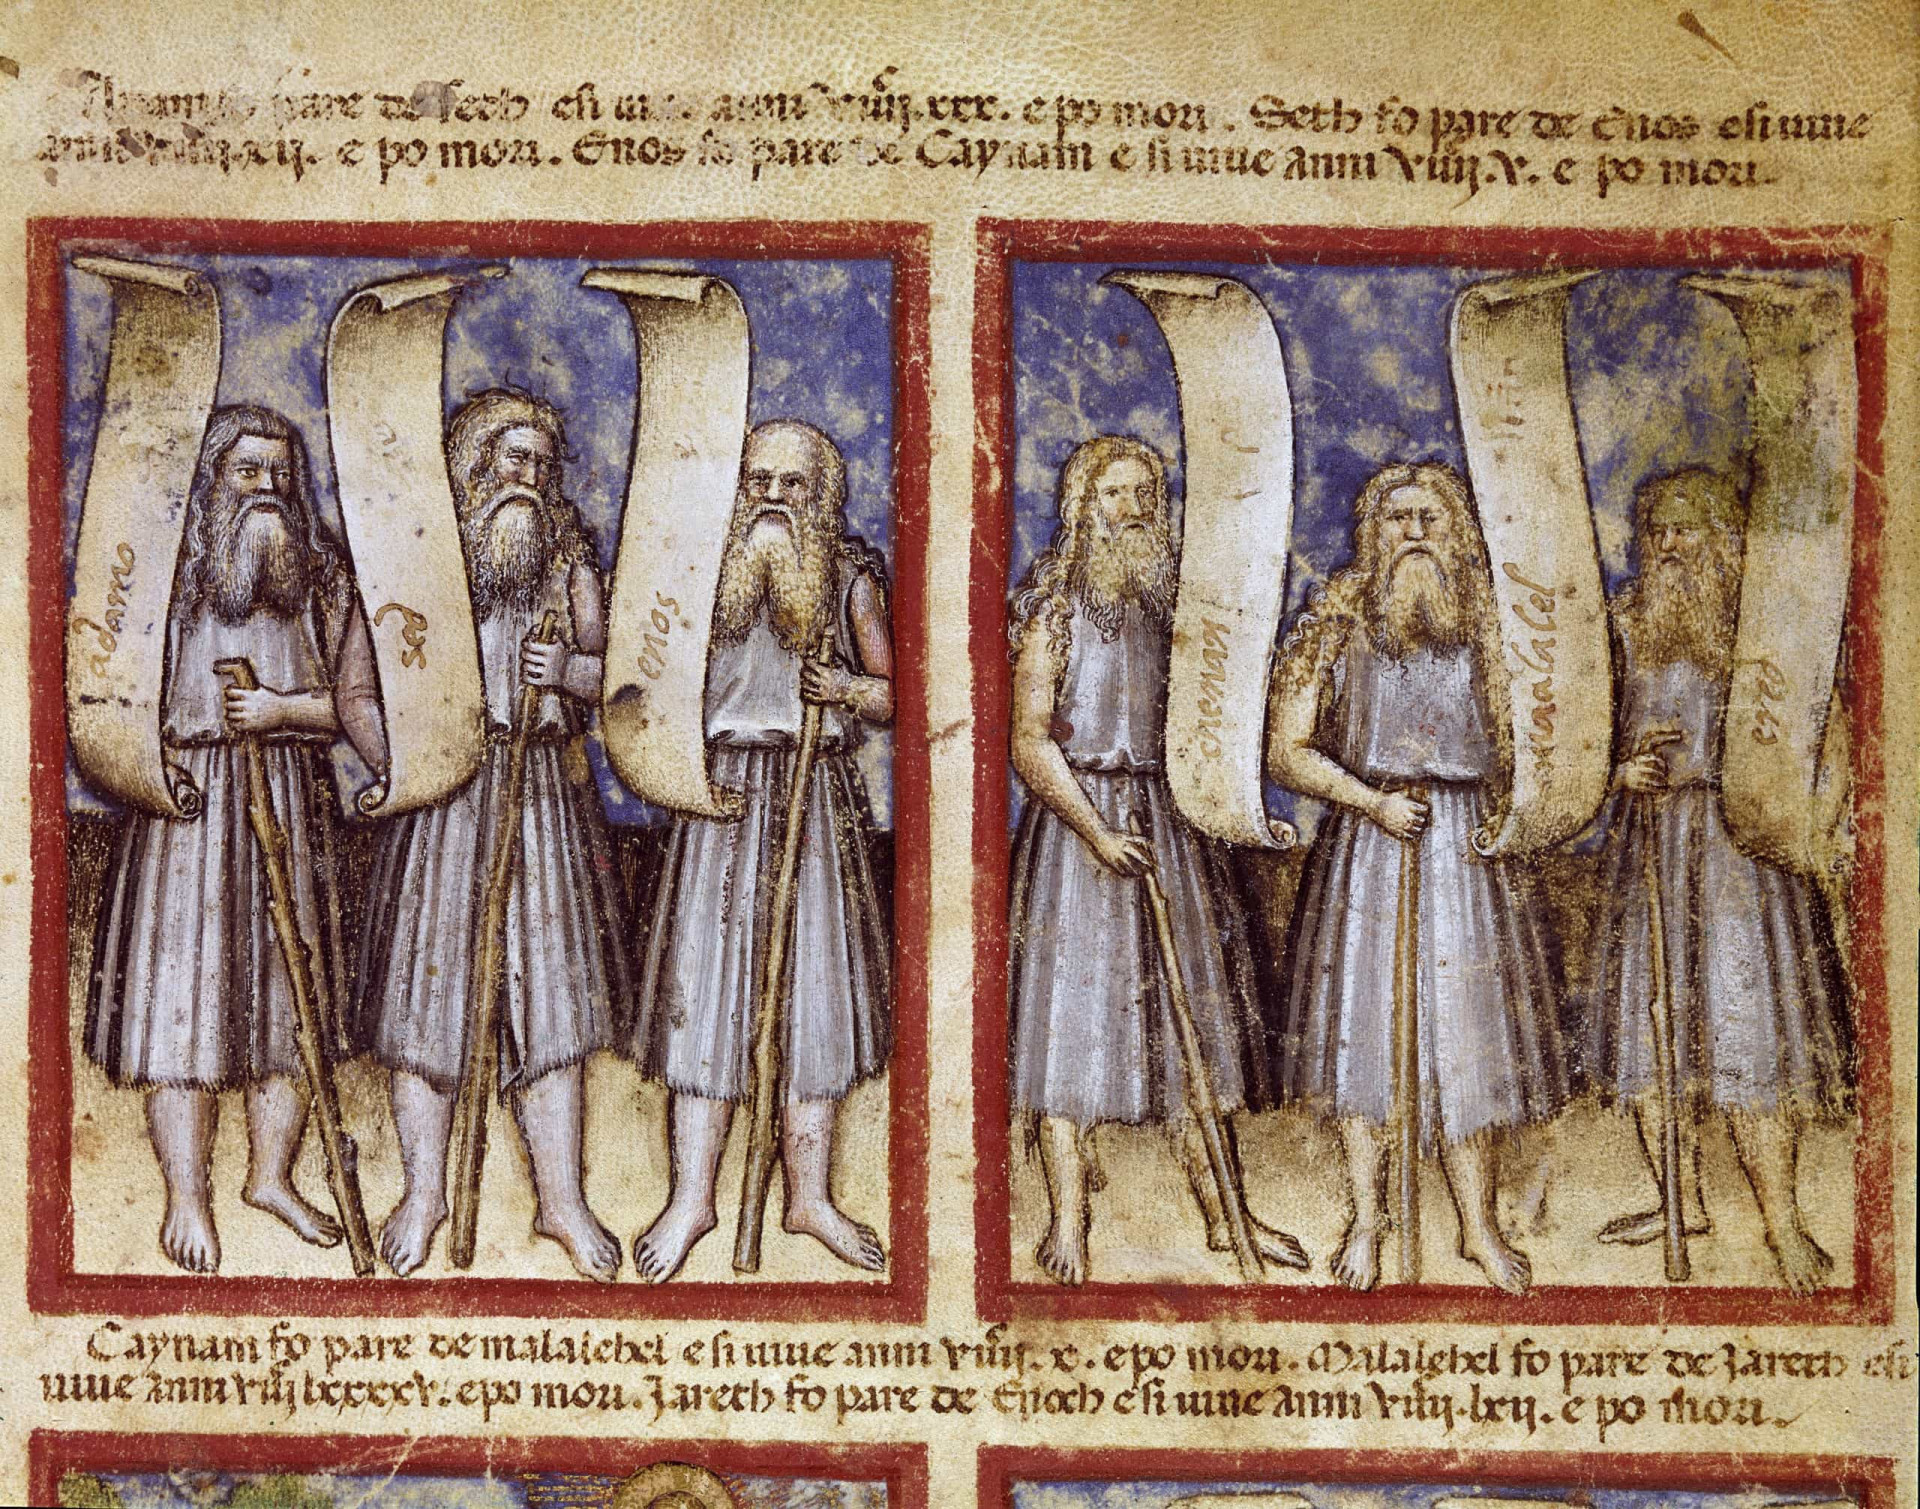 Adam fo pare de Seth e si uiue anni viiij.xxx. e po mori. Seth fo pare de Enos e si uiue
anni viiij.xij. e po mori. Enos fo pare de Caynam e si uiue anni viiij.v. e po mori.
adamo
sed
enos
cienan
malalel
ered
Caynam fo pare de malalehel e si uiue anni viiij.x. e po mori. Malalehel fo pare de Jareth e si
uiue anni viij lxxxxv. e po mori. Jareth fo pare de Enoch e si uiue anni viiij.lxij. e po mori.